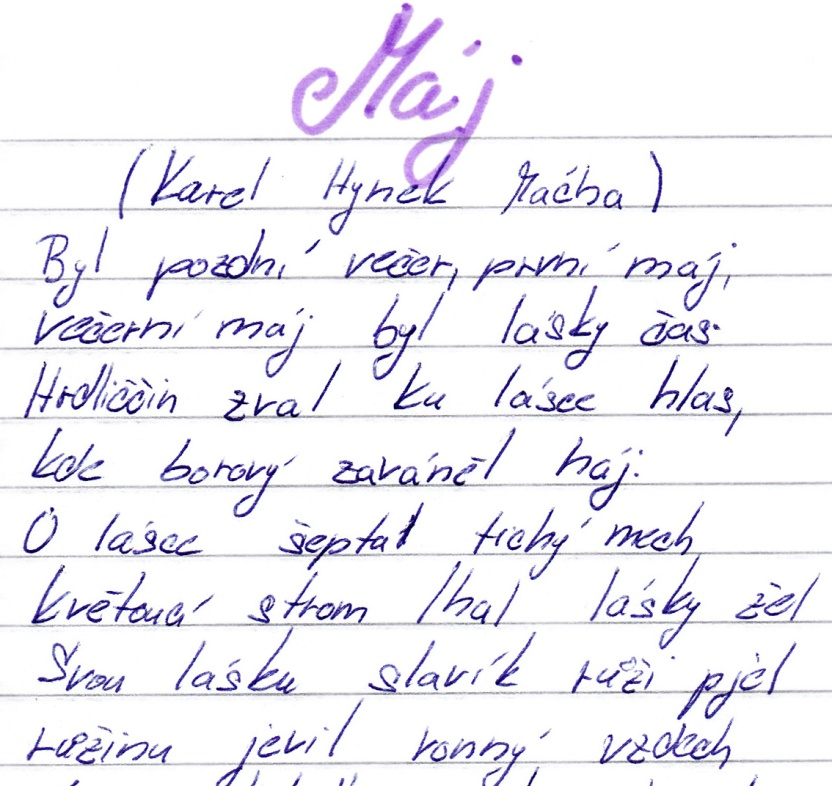 Máj
(Karel Hynek Mácha)
Byl pozdní večer, první máj,
večerní máj byl lásky čas.
Hrdliččin zval ku lásce hlas,
kde borový zaváněl háj.
O lásce šeptal tichý mech
květoucí strom lhal lásky žel
Svou lásku slavík růži pjel
růžinu jevil vonný vzdech